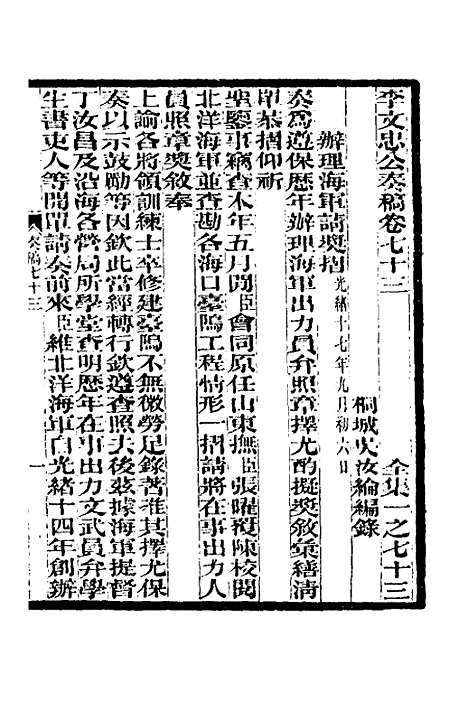 李文忠公奏稿卷七十三　全集一之七十三
桐城吳汝綸編錄
辦理海軍請獎摺光緒十七年九月初六日
奏爲遵保歷年辦理海軍出力員弁照章擇尤酌擬獎敘彙繕清
單恭摺仰祈
聖鑒事竊查本年五月間臣會同原任山東撫臣張曜覆陳校閱
北洋海軍並查勘各海口臺隖工程情形一摺請將在事出力人
員照章獎敘奉
上諭各將領訓練士卒修建臺隖不無微勞足錄著准其擇尤保
奏以示鼓勵等因欽此當經轉行欽遵查照去後茲據海軍提督
丁汝昌及沿海各營局所學堂查明歷年在事出力文武員弁學
生書吏人等開單請奏前來臣維北洋海軍自光緒十四年創辦
奏稿七十三
一